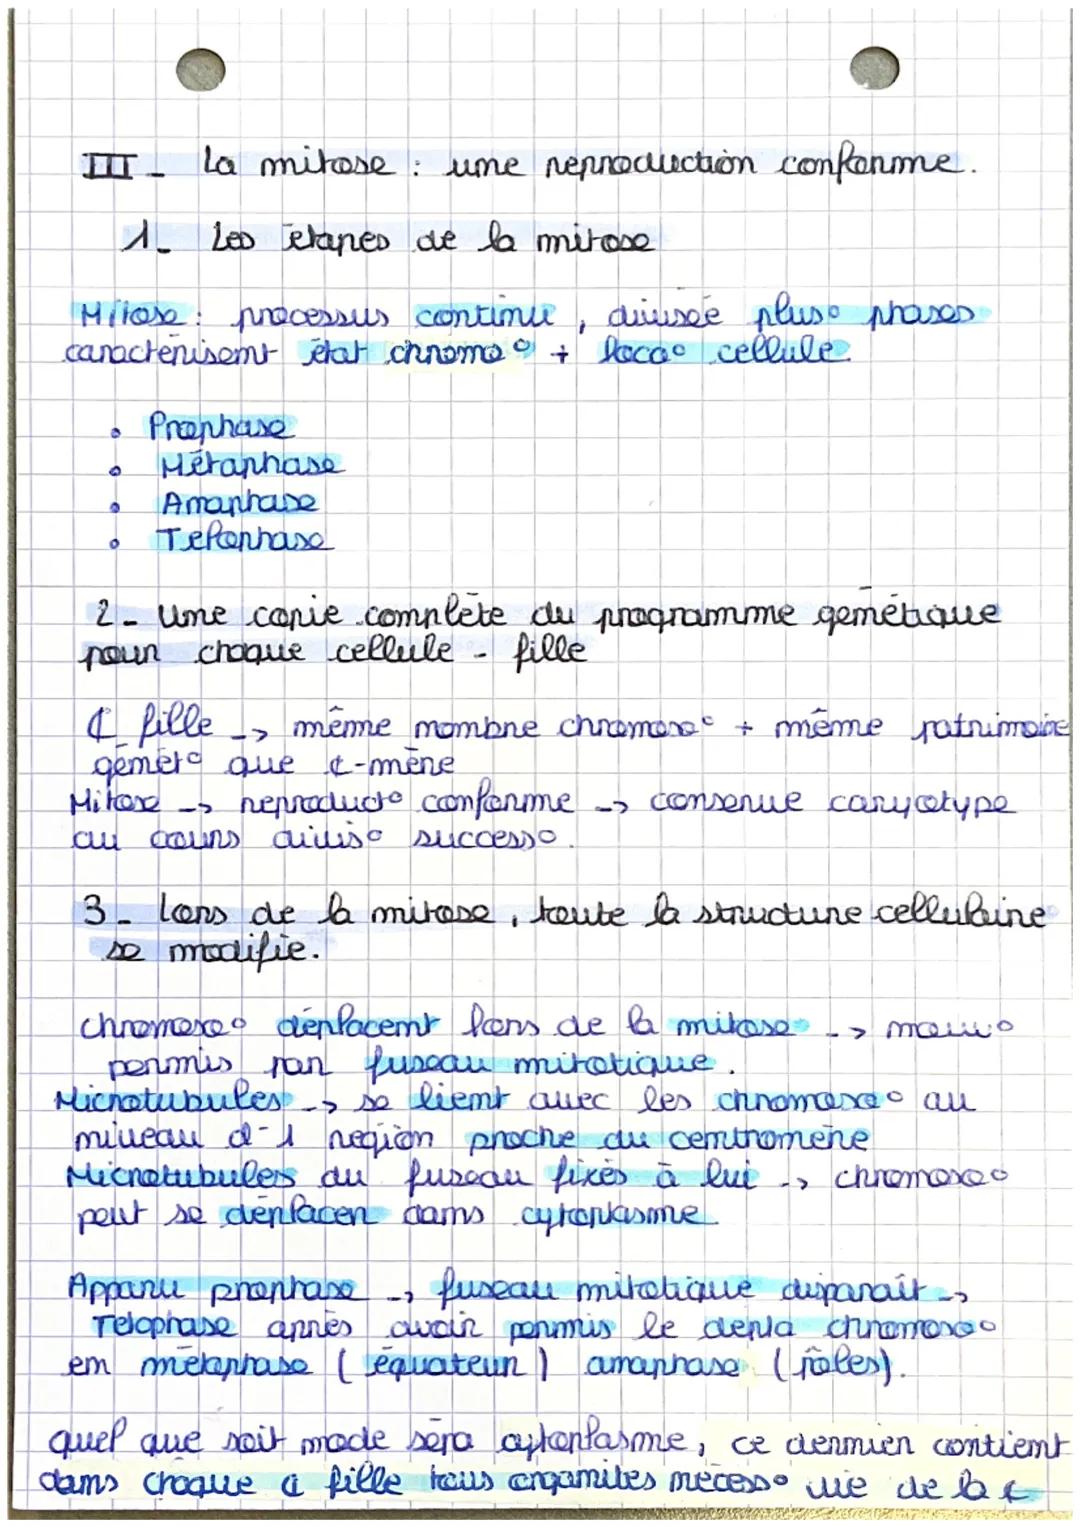 III - La mitose : une reproduction conforme.
1 - Les étapes de la mitose
Mitose : processus continu, divisée plus° phases
caractérisent état chromo° + loca° cellule
• Prophase
• Métaphase
• Anaphase
• Télophase
2 - Une copie complète du programme génétique
pour chaque cellule - fille
¢ fille -> même nombre chromoso° + même patrimoine
génét° que ¢-mère
Mitose -> reproduct° conforme -> conserve caryotype
au cours divis° success°.
3 - Lors de la mitose, toute la structure cellulaire
se modifie.
chromoso° déplacent lors de la mitose -> mouv°
permis par fuseau mitotique.
Microtubules -> se lient avec les chromoso° au
niveau d-1 région proche du centromère
Microtubules du fuseau fixés à lui -> chromoso°
peut se déplacer dans cytoplasme
Apparu prophase -> fuseau mitotique disparaît ->
Télophase après avoir permis le dépla chromoso°
en métaphase (équateur) anaphase (pôles).
quel que soit mode sépa cytoplasme, ce dernier contient
dans chaque ¢ fille tous organites nécess° vie de la ¢